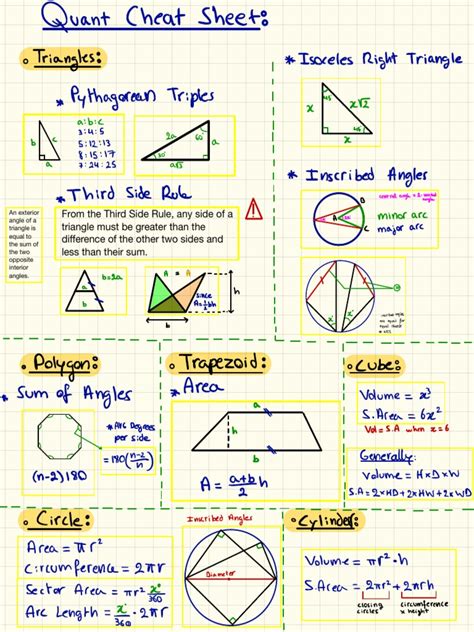 Quant Cheat Sheet:
Triangles:
* Pythagorean Triples
a:b:c
3:4:5
5:12:13
8:15:17
7:24:25
b
c
a
2a
60°
a
30°
a√3
* Isoceles Right Triangle
x
45°
x√2
45°
x
* Third Side Rule
An exterior
angle of a
triangle is
equal to
the sum of
the two
opposite
interior
angles.
From the Third Side Rule, any side of a
triangle must be greater than the
difference of the other two sides and
less than their sum.
a
b=2a
b
A = A
since
A=½bh
h
b
* Inscribed Angles
B
A
C
minor arc
major arc
x°
x°
Polygon:
* Sum of Angles
* Arc Degrees
per side
=180(n-2/n)
(n-2)180
Trapezoid:
* Area
a
h
b
A = a+b/2 h
Cube:
Volume = x³
S.Area = 6x²
Vol = S.A when x=6
Generally:
Volume = H×D×W
S.A = 2×HD+2×HW+2×WD
Circle:
Area = πr²
Circumference = 2πr
Sector Area = πr² x°/360
Arc Length = x°/360 · 2πr
Inscribed Angles
Diameter
Cylinder:
Volume = πr²·h
S.Area = 2πr² + 2πrh
closing
circles
circumference
x height